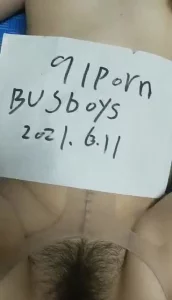 91Porn
BUSboys
2021.6.11